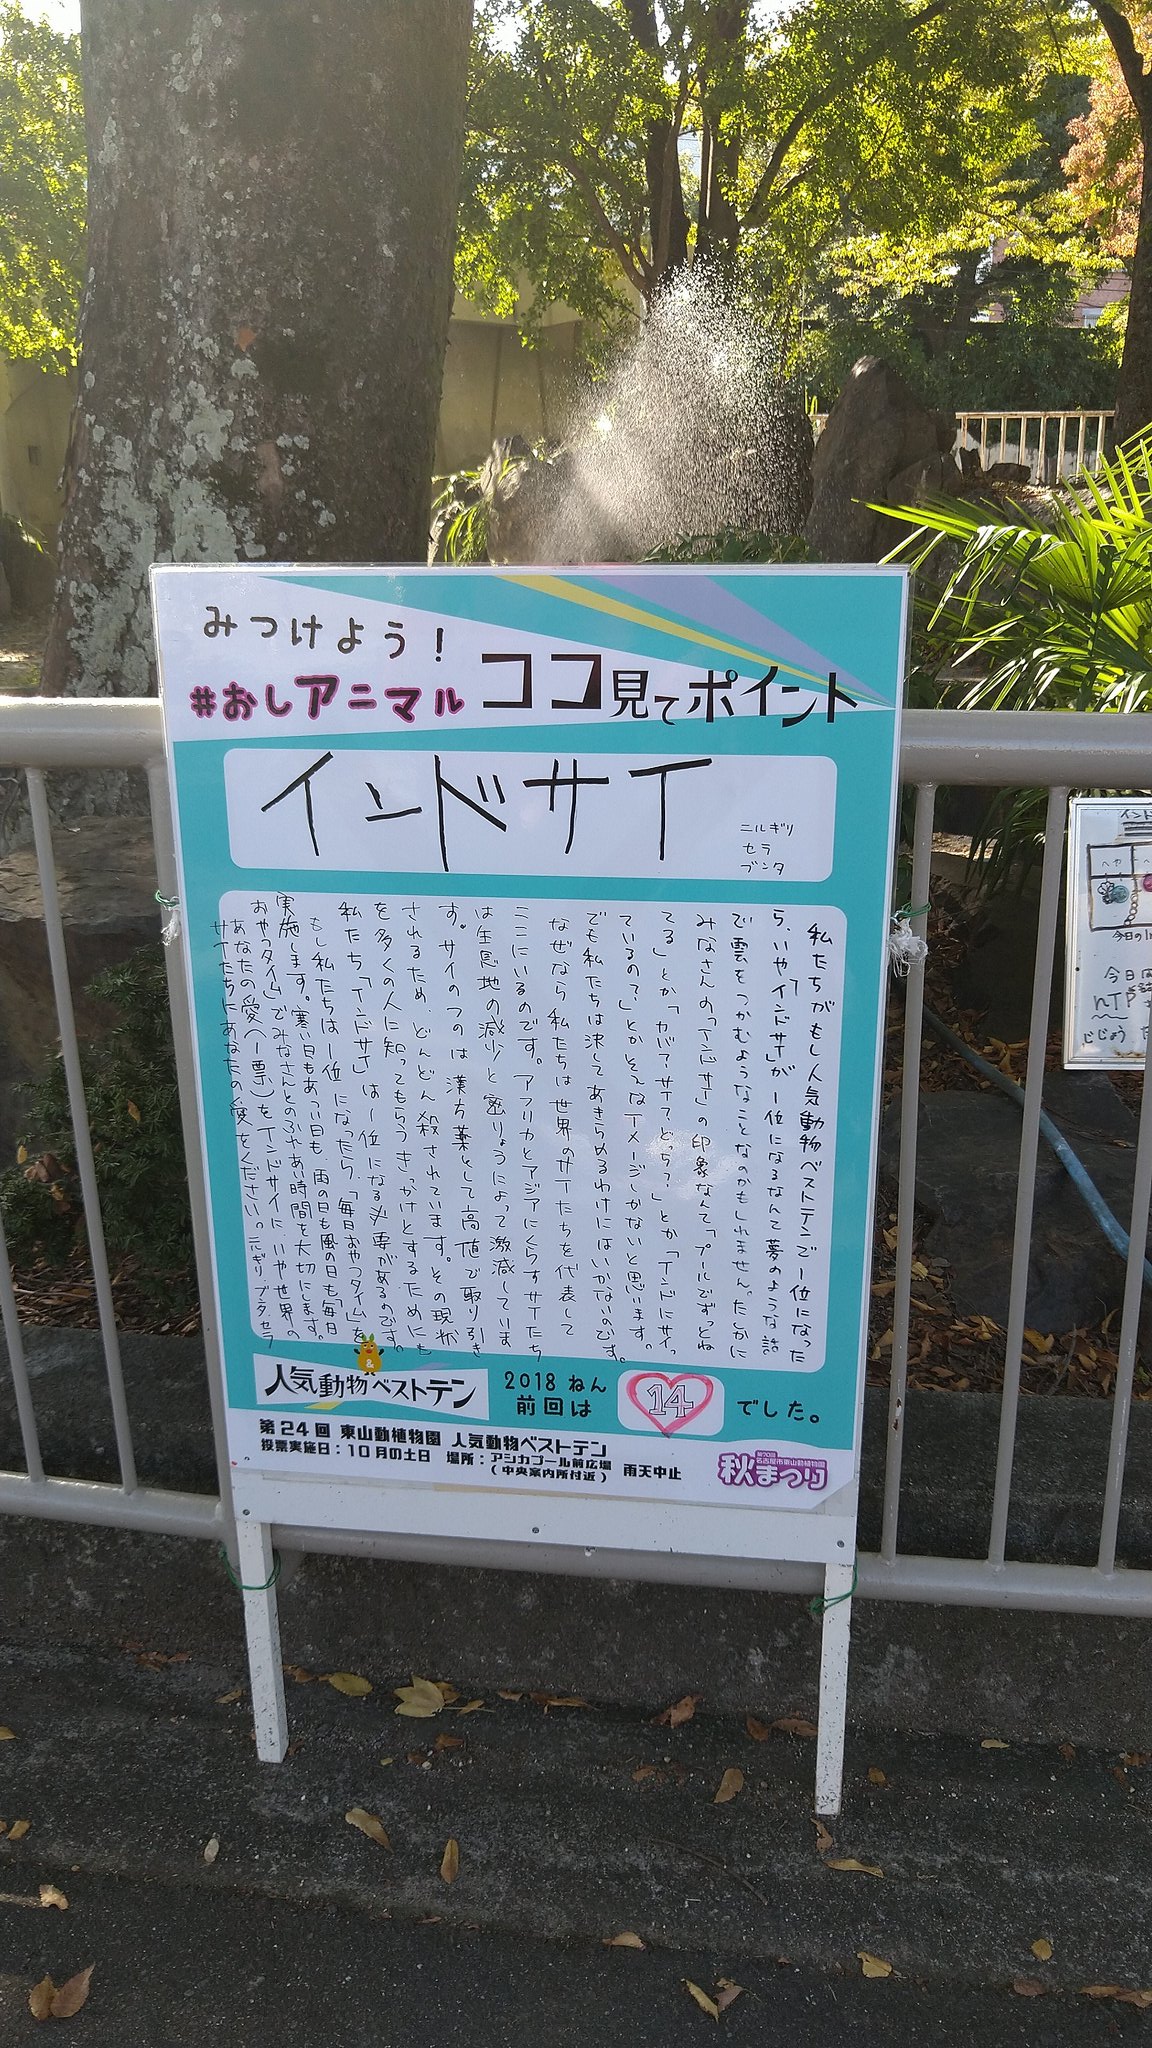 みつけよう！
#おしアニマル ココ見てポイント
インドサイ
ニルギリ
セラ
ブンタ
私たちがもし人気動物ベストテンで1位になった
ら、いや「インドサイ」が1位になるなんて夢のような話
で雲をつかむようなことなのかもしれません。たしかに
みなさんの「インドサイ」の印象なんて「プールでずっとね
てる」とか「カバ？サイ？どっち？」とか「インドにサイっ
ているの？」とかそんなイメージしかないと思います。
でも私たちは決してあきらめるわけにはいかないのです。
なぜなら私たちは世界のサイたちを代表して
ここにいるのです。アフリカとアジアにくらすサイたち
は生息地の減少と密りょうによって激減していま
す。サイのつのは漢方薬として高値で取り引き
されるため、どんどん殺されています。その現状
を多くの人に知ってもらうきっかけとするためにも
私たち「インドサイ」は1位になる必要があるのです。
もし私たちは1位になったら、「毎日おやつタイム」を
実施します。寒い日もあつい日も、雨の日も風の日も「毎日
おやつタイム」でみなさんとのふれあい時間を大切にします。
あなたの愛（一票）をインドサイに、いや世界の
サイたちにあなたの愛をください。ニルギリ ブンタ セラ
人気動物ベストテン
2018 ねん
前回は 14 でした。
第24回 東山動植物園 人気動物ベストテン
投票実施日：10月の土日 場所：アシカプール前広場 雨天中止
（中央案内所付近）
名古屋市東山動植物園
秋まつり
へや
今日の
今日